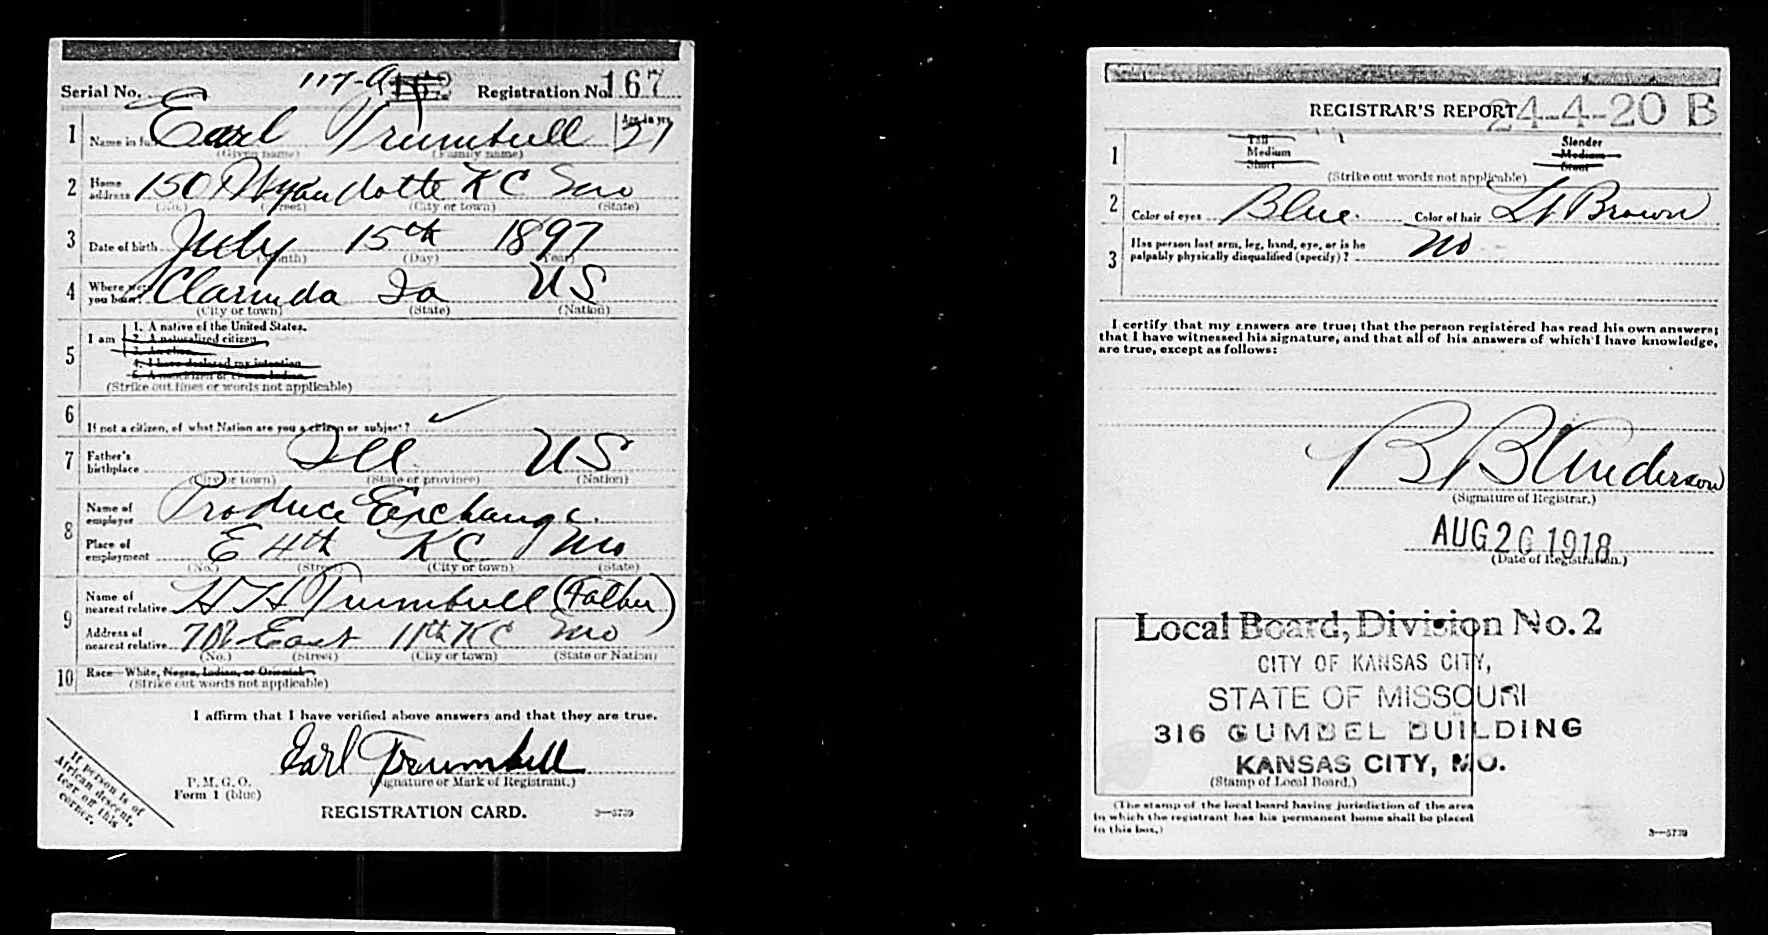 Serial No. 117-A 162 Registration No. 167
1 Name in full Earl Trumbull Age, in yrs. 21
(Given name) (Family name)
2 Home address Wyandotte K C Mo
(No.) (Street) (City or town) (State)
3 Date of birth July 15th 1897
(Month) (Day) (Year)
4 Where were you born? Clarinda Ia US
(City or town) (State) (Nation)
5 I am
1. A native of the United States.
2. A naturalized citizen
3. An alien
4. I have declared my intention
5. A noncitizen or citizen Indian
(Strike out lines or words not applicable)
6 If not a citizen, of what Nation are you a citizen or subject?
7 Father's birthplace Ill US
(City or town) (State or province) (Nation)
8 Name of employer Produce Exchange
Place of employment E 4th K C Mo
(No.) (Street) (City or town) (State)
9 Name of nearest relative H Trumbull (Father)
Address of nearest relative East 11th K C Mo
(No.) (Street) (City or town) (State or Nation)
10 Race—White, Negro, Indian, or Oriental
(Strike out words not applicable)
I affirm that I have verified above answers and that they are true.
Earl Trumbull
(Signature or Mark of Registrant.)
P. M. G. O.
Form 1 (blue)
REGISTRATION CARD.
3—5739
If person is of
African descent,
tear off this
corner.
REGISTRAR'S REPORT 24-4-20 B
1 Tall Medium Short Slender Medium Stout
(Strike out words not applicable)
2 Color of eyes Blue Color of hair Lt Brown
3 Has person lost arm, leg, hand, eye, or is he
palpably physically disqualified (specify)? No
I certify that my answers are true; that the person registered has read his own answers;
that I have witnessed his signature, and that all of his answers of which I have knowledge,
are true, except as follows:
B B Anderson
(Signature of Registrar.)
AUG 26 1918
(Date of Registration.)
Local Board, Division No. 2
CITY OF KANSAS CITY,
STATE OF MISSOURI
316 GUMBEL BUILDING
KANSAS CITY, MO.
(Stamp of Local Board.)
(The stamp of the local board having jurisdiction of the area
in which the registrant has his permanent home shall be placed
in this box.)
3—5739